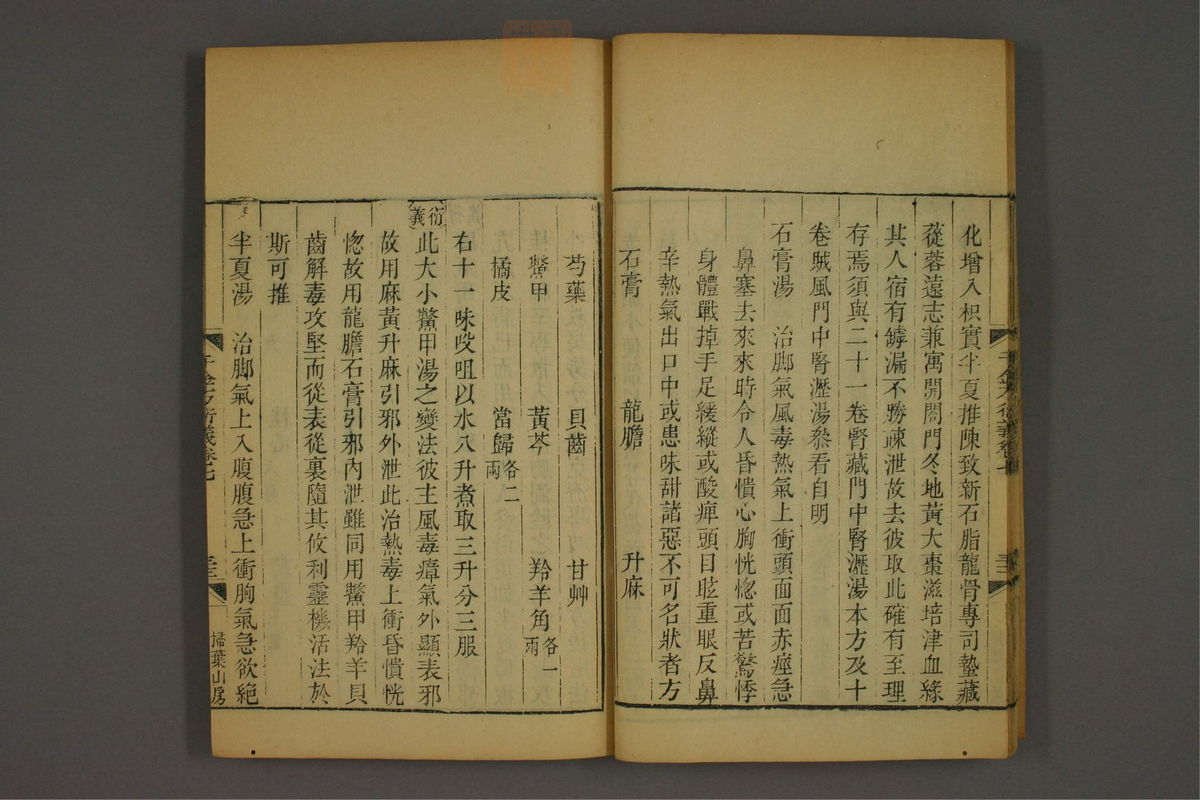 化增入枳實半夏推陳致新石脂龍骨專司蟄藏
蓯蓉遠志兼寓開闔門冬地黃大棗滋培津血緣
其人宿有鏬漏不勝疎泄故去彼取此確有至理
存焉須與二十一卷腎藏門中腎瀝湯本方及十
卷賊風門中腎瀝湯叅看自明
石膏湯 治脚氣風毒熱氣上衝頭面面赤痙急
鼻塞去來來時令人昏憒心胸恍惚或苦驚悸
身體戰掉手足緩縱或酸痺頭目眩重眼反鼻
辛熱氣出口中或患味甜諸惡不可名狀者方
石膏 龍膽 升麻
芍藥 貝齒 甘艸
鱉甲 黃芩 羚羊角各一兩
橘皮 當歸各二兩
右十一味㕮咀以水八升煮取三升分三服
衍義
此大小鱉甲湯之變法彼主風毒瘴氣外顯表邪
故用麻黃升麻引邪外泄此治熱毒上衝昏憒恍
惚故用龍膽石膏引邪內泄雖同用鱉甲羚羊貝
齒解毒攻堅而從表從裏隨其攸利靈機活法於
斯可推
半夏湯 治脚氣上入腹腹急上衝胸氣急欲絕
千金方衍義卷七
掃葉山房